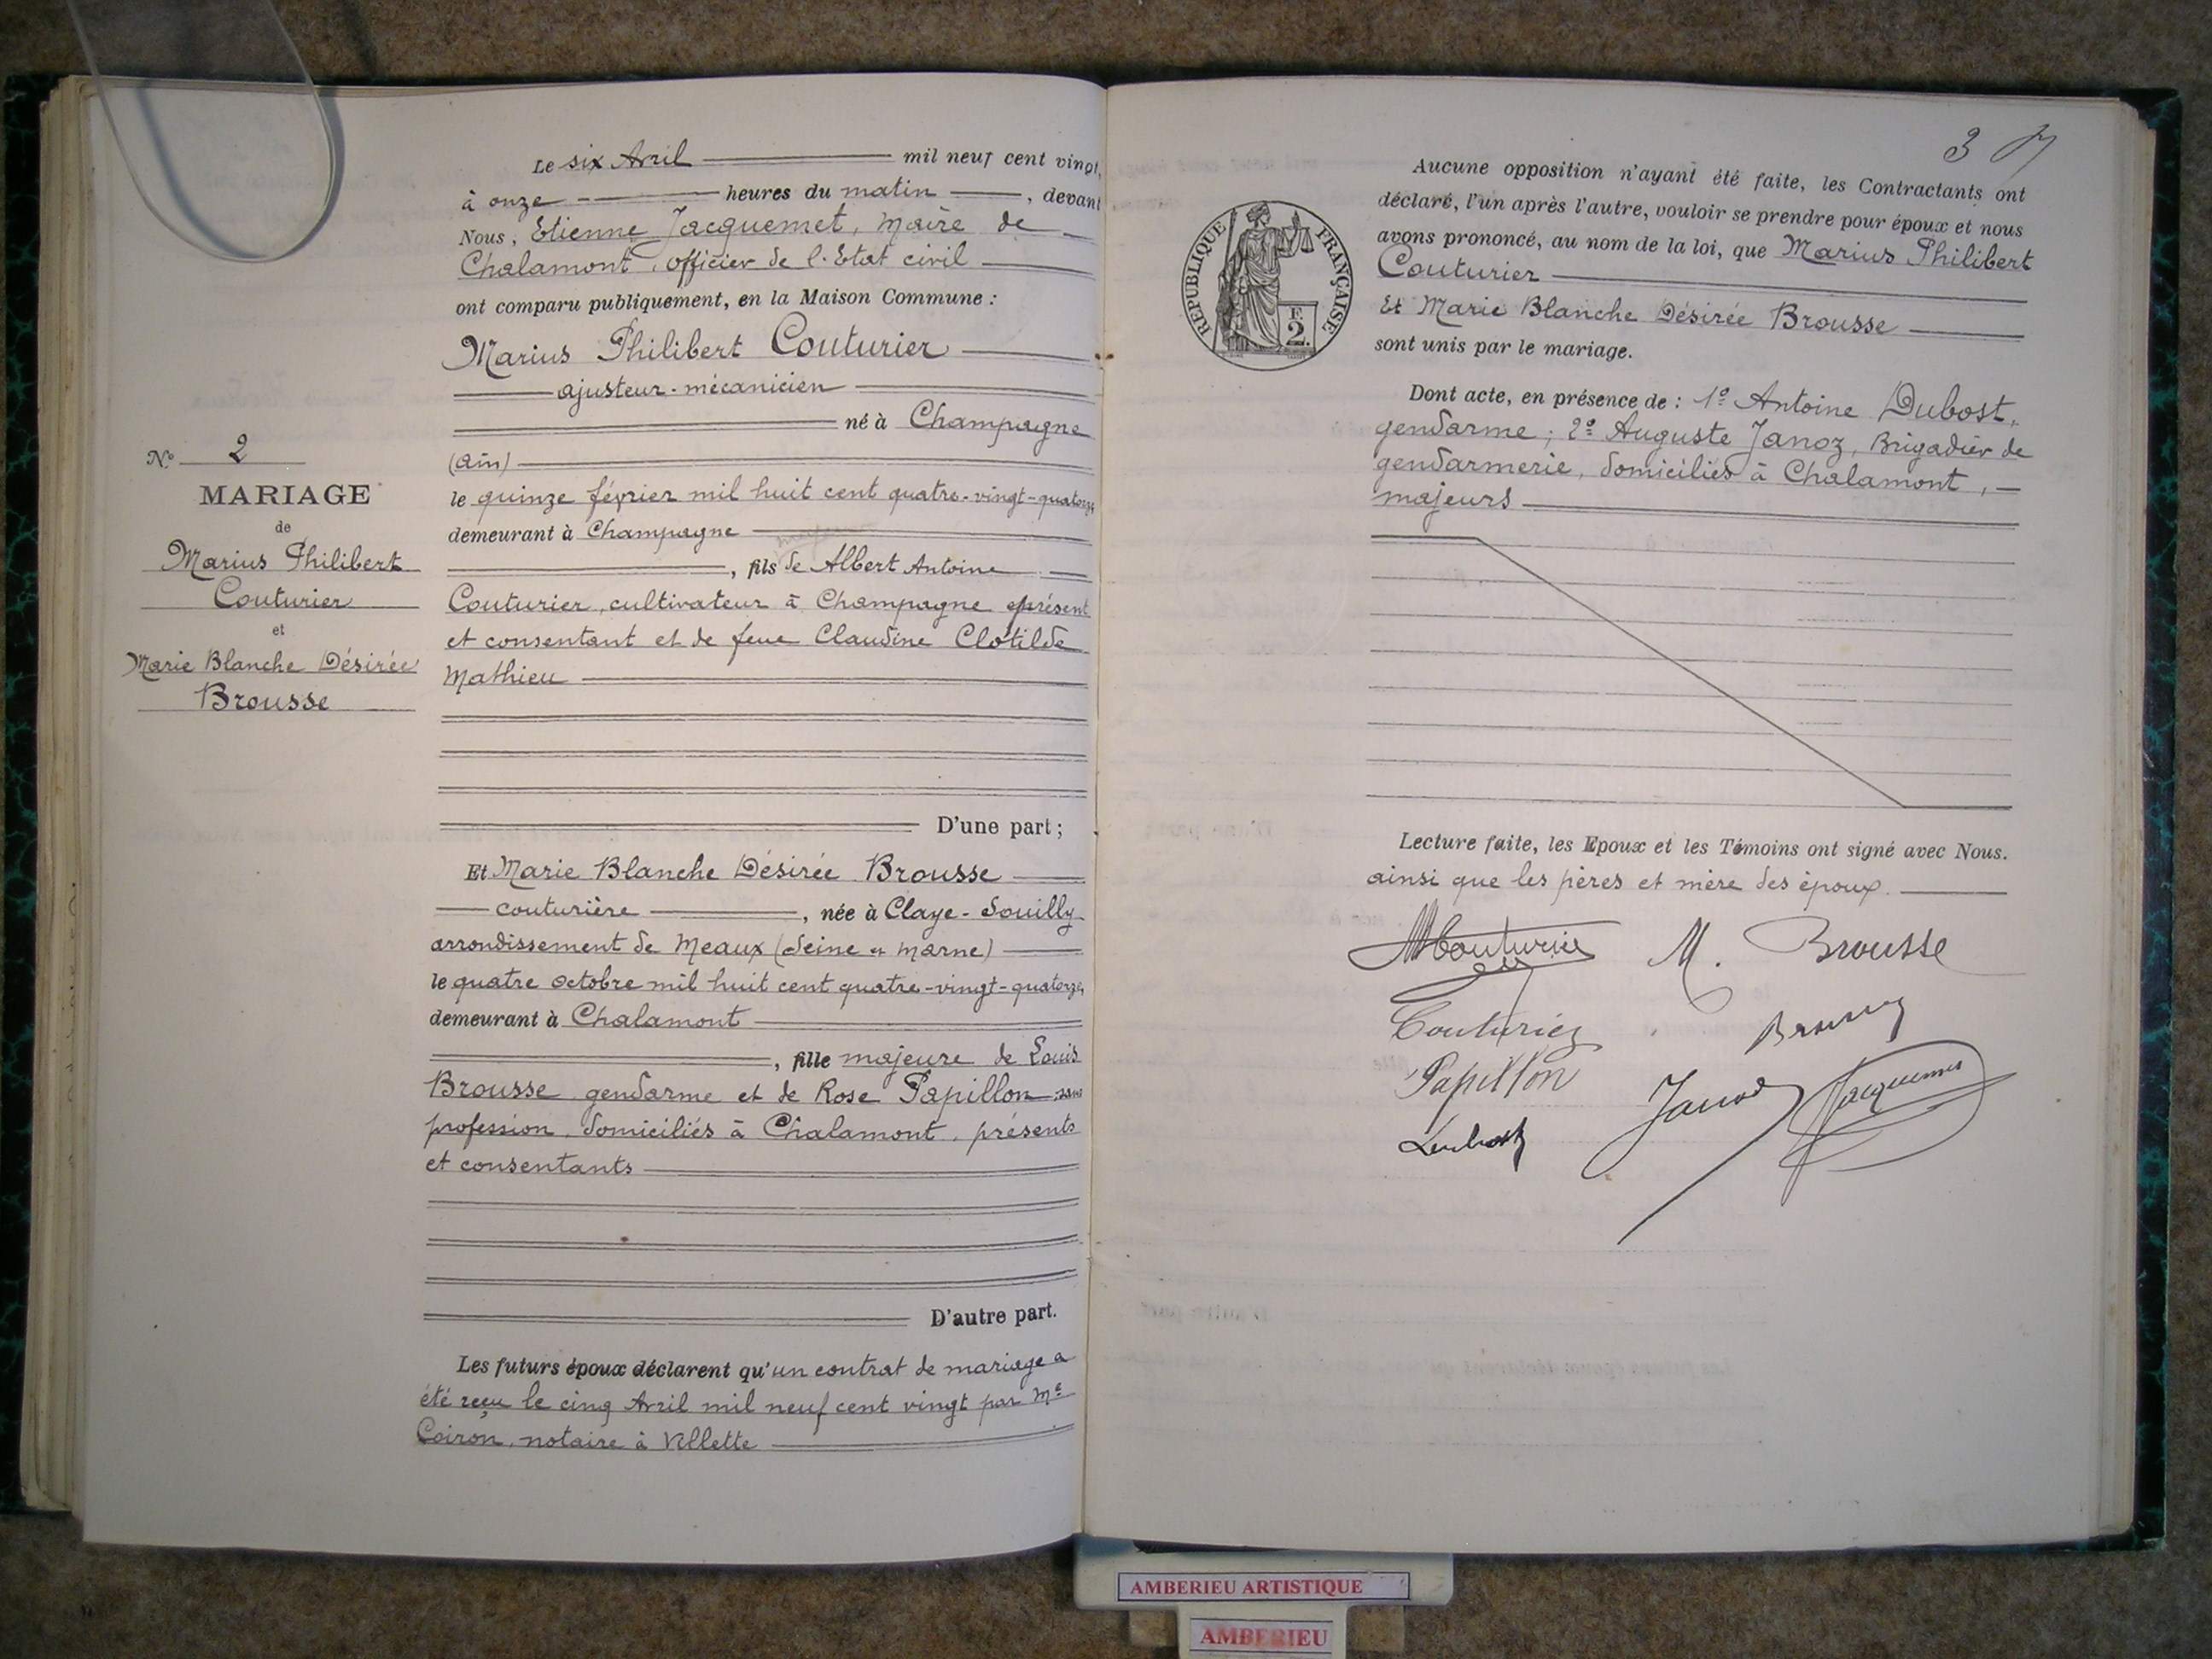 Le six Avril mil neuf cent vingt,
à onze heures du matin, devant
Nous, Etienne Jacquemet, maire de
Chalamont, officier de l'Etat civil
ont comparu publiquement, en la Maison Commune :
Marius Philibert Couturier
ajusteur-mécanicien
né à Champagne
(Ain)
le quinze février mil huit cent quatre-vingt-quatorze
demeurant à Champagne
majeur
, fils de Albert Antoine
Couturier, cultivateur à Champagne présent
et consentant et de feue Claudine Clotilde
Mathieu
D'une part ;
Et Marie Blanche Désirée Brousse
couturière, née à Claye-Souilly
arrondissement de Meaux (Seine et Marne)
le quatre octobre mil huit cent quatre-vingt-quatorze,
demeurant à Chalamont
, fille majeure de Louis
Brousse gendarme et de Rose Papillon sans
profession, domiciliés à Chalamont, présents
et consentants
D'autre part.
Les futurs époux déclarent qu'un contrat de mariage a
été reçu le cinq Avril mil neuf cent vingt par Me
Coiron, notaire à Villette
No 2
MARIAGE
de
Marius Philibert
Couturier
et
Marie Blanche Désirée
Brousse
3
Aucune opposition n'ayant été faite, les Contractants ont
déclaré, l'un après l'autre, vouloir se prendre pour époux et nous
avons prononcé, au nom de la loi, que Marius Philibert
Couturier
Et Marie Blanche Désirée Brousse
sont unis par le mariage.
Dont acte, en présence de : 1° Antoine Dubost,
gendarme ; 2° Auguste Janoz, Brigadier de
gendarmerie, domiciliés à Chalamont,
majeurs
RÉPUBLIQUE FRANÇAISE
E
2.
Lecture faite, les Epoux et les Témoins ont signé avec Nous.
ainsi que les pères et mère des époux.
MCouturier M. Brousse
Couturier Brousse
Papillon Janoz Jacquemet
Dubost
AMBERIEU ARTISTIQUE
AMBERIEU